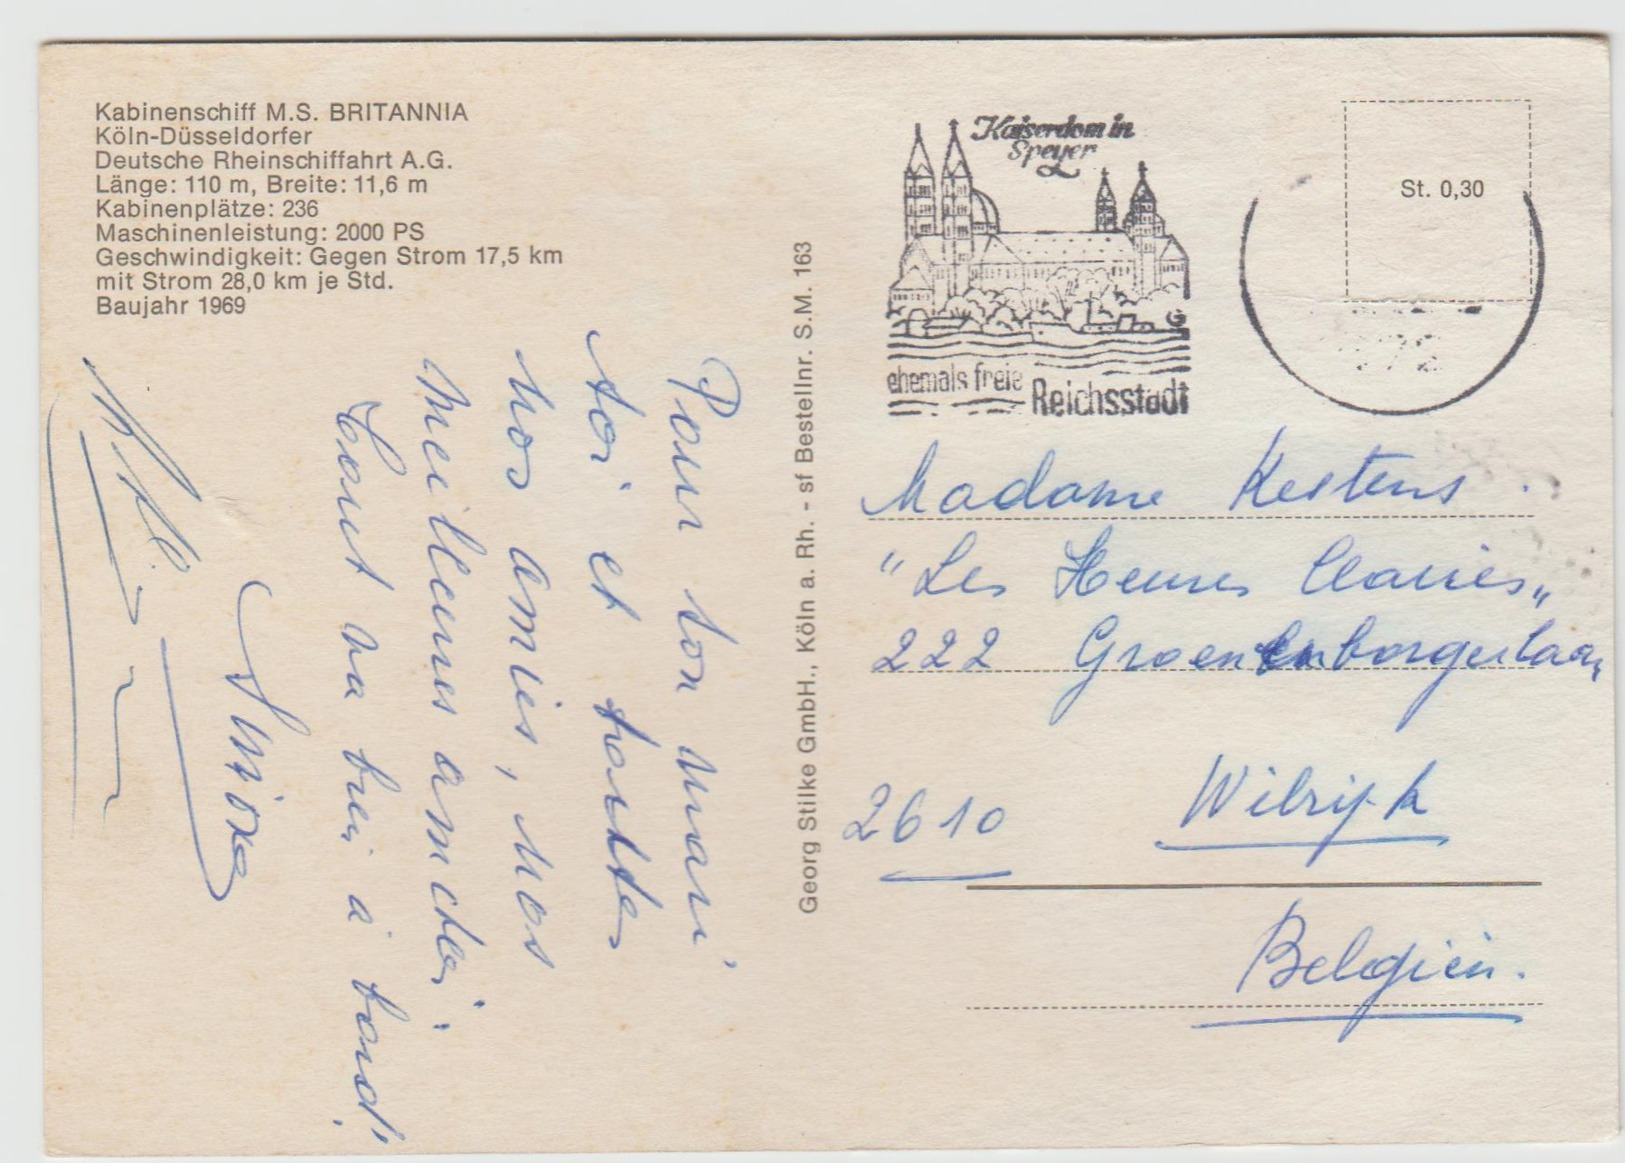 Kabinenschiff M.S. BRITANNIA
Köln-Düsseldorfer
Deutsche Rheinschiffahrt A.G.
Länge: 110 m, Breite: 11,6 m
Kabinenplätze: 236
Maschinenleistung: 2000 PS
Geschwindigkeit: Gegen Strom 17,5 km
mit Strom 28,0 km je Std.
Baujahr 1969
Pour ton mari,
toi et toutes
nos amies, nos
meilleures amitiés.
Tout va bien à bord!
Georg Stilke GmbH., Köln a. Rh. - sf Bestellnr. S.M. 163
Kaiserdom in
Speyer
ehemals freie
Reichsstadt
St. 0,30
Madame Kestens.
"Les Heures Claires"
222 Groenenborgerlaan
2610 Wilrijk
Belgien.